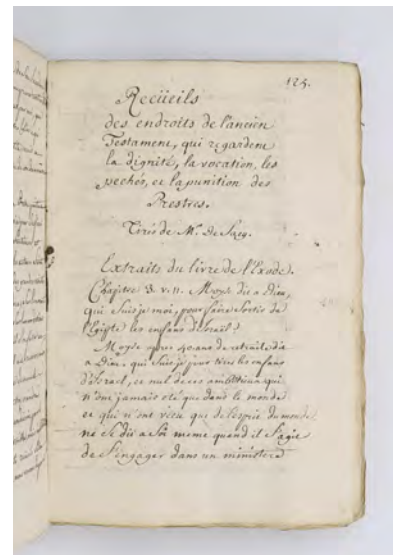 125.
Recüeils
des endroits de l'ancien
Testament, qui regardent
la dignité, la vocation, les
pechés, et la punition des
Prestres.
Tirés de Mr. De Sacy.
Extraits du livre de l'Exode.
Chapitre 3. v. 11. Moyse dit a Dieu,
qui suis je moi, pour faire sortir de
l'Egipte les enfans d'Israel?
Moyse apres 40 ans de retraite dit
a Dieu, qui suis je pour tirer les enfans
d'Israel, et nul de ces ambitieux qui
n'ont jamais eté que dans le monde
et qui n'ont vecu que de l'esprit du monde
ne se dit a soi meme quand il s'agit
de s'engager dans un ministere